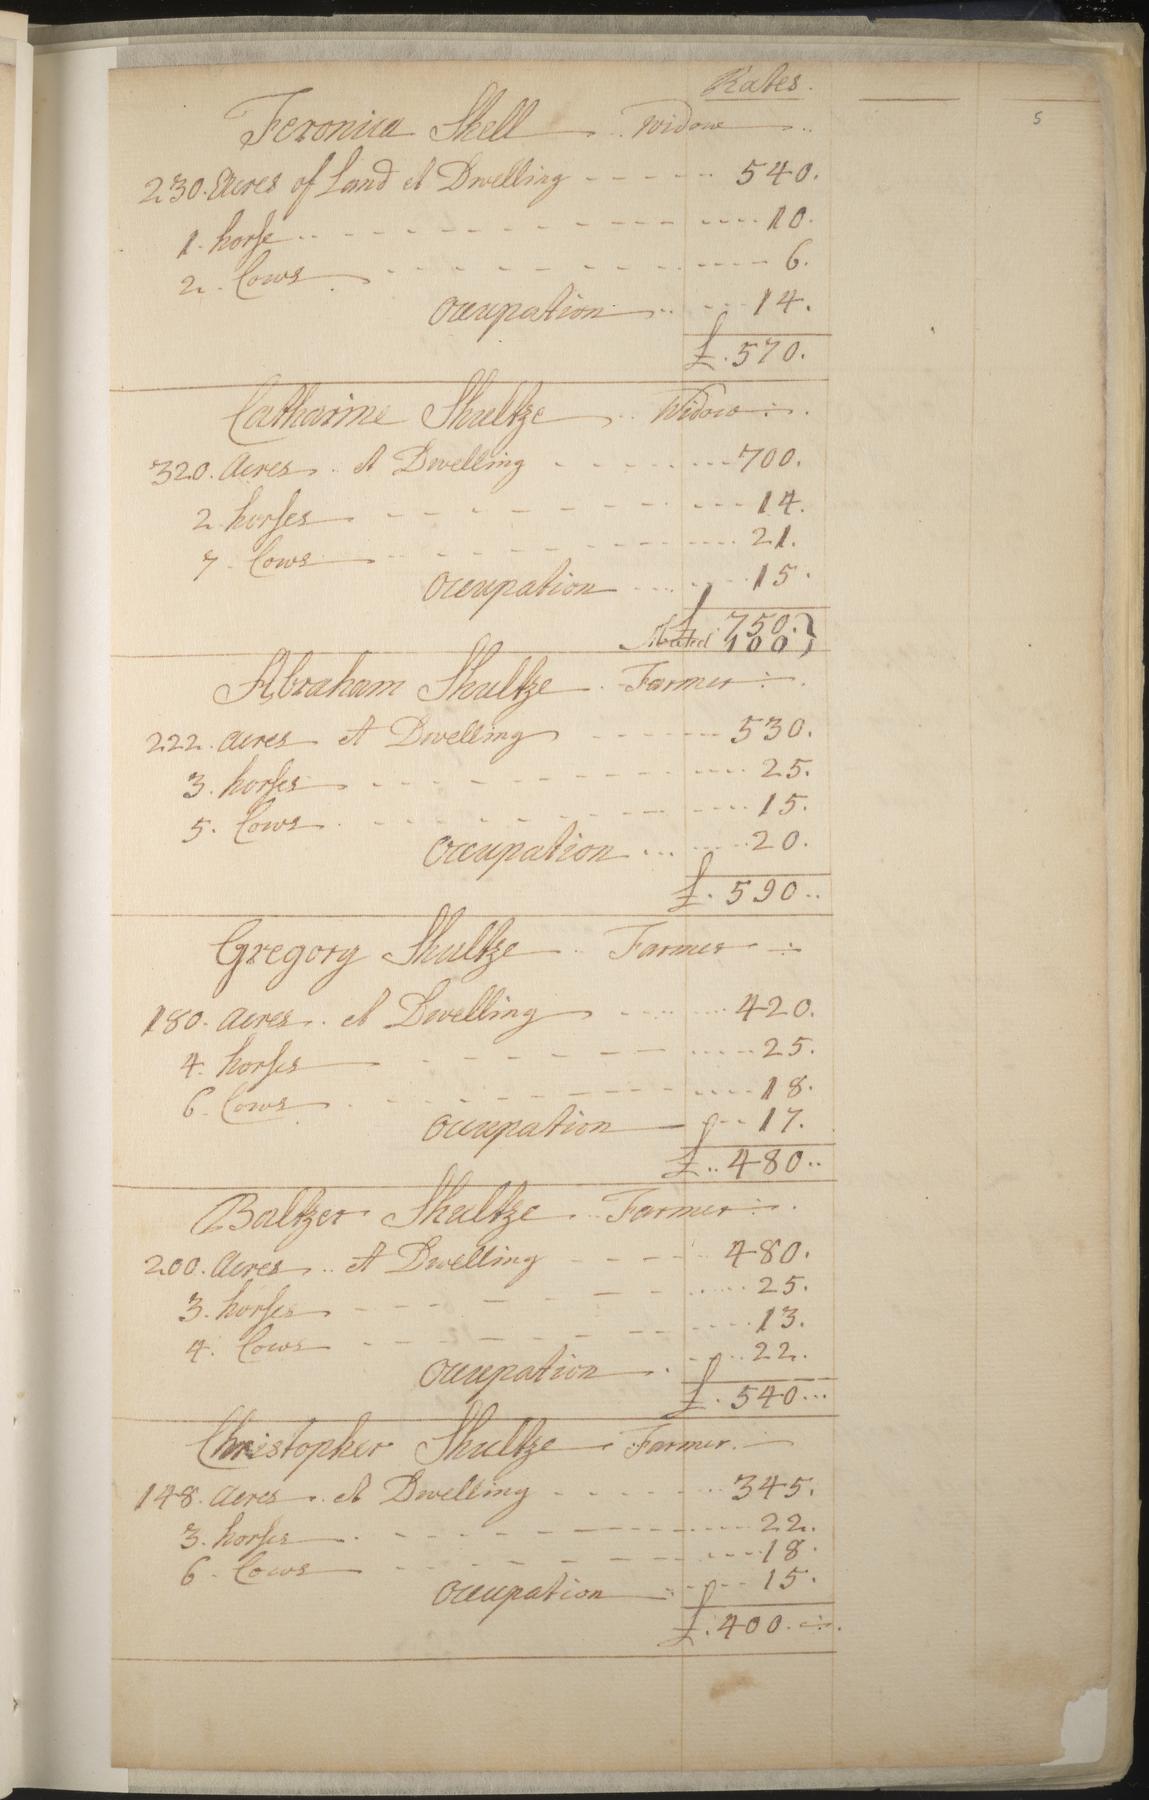 Rates.
5
Feronica Shell .. Widow ..
230. Acres of Land & Dwelling - - - - - ... 540.
1. horse .. - - - - - - - - - .... 10.
2. Cows - - - - - - - - - - 6.
Occupation .. - - - 14.
£. 570.
Catharine Shultze .. Widow :.
320. Acres .. & Dwelling - - - - - ... 700.
2. horses - - - - - - - - - ... 14.
7. Cows - - - - - - - - ... 21.
Occupation .... - - 15.
£ 750. }
Abated 100 }
Abraham Shultze . Farmer :.
222. acres & Dwelling - - - - - ... 530.
3. horses - - - - - - - - - .... 25.
5. Cows - - - - - - - - - .... 15.
Occupation ... .... 20.
£. 590..
Gregory Shultze .. Farmer :
180. acres . & Dwelling - - ..... 420.
4. horses - - - - - - - .... 25.
6. Cows - - - - - - - - .... 18.
Occupation - - - 17.
£ .. 480..
Baltzer Shultze .. Farmer :.
200. Acres .. & Dwelling - - - - .. 480.
3. horses - - - - - - - ..... 25.
4. Cows - - - - - - - - .... 13.
Occupation . - - .. 22.
£. 540...
Christopher Shultze . Farmer. -
148. acres . & Dwelling - - - - - ... 345.
3. horses . - - - - - - .... 22.
6. Cows - - - - - - - - ... 18.
Occupation - - - 15.
£. 400. -:-.